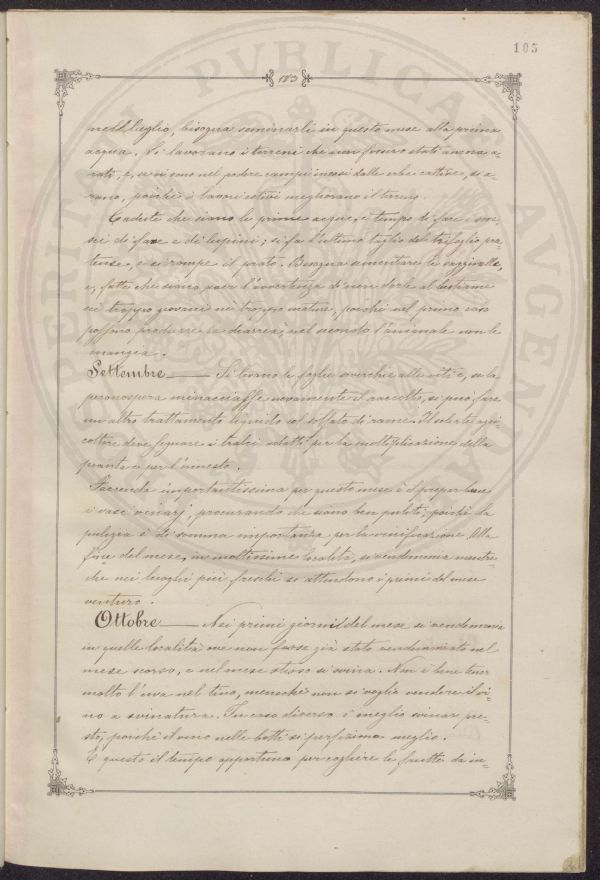 105
103
nell luglio, bisogna seminarli in questo mese alla prima
acqua. Si lavorano i terreni che non furono stati ancora a=
rati, e, se vi sono nel podere campi invasi dalle erbe cattive, si a=
rano, poichè i lavori estivi migliorano il terreno.
Cadute che siano le prime acque, è tempo di fare i
di fave e di lupini; si fa l'ultimo taglio del trifoglio pra
tense, e si rompe il prato. Bisogna aumentare le
e, fatte che siano, aver l'avvertenza di non darle al bestiame
nè troppo giovani nè troppo mature, poichè nel primo caso
possono produrre la diarrea, nel secondo l'animale non le
mangia.
Settembre — Si tolgono le foglie soverchie alle viti e, se la
peronospera minacciasse novamente il raccolto, si può fare
un altro trattamento liquido col solfato di rame. Il solerte agri
coltore deve segnare i tralci adatti per la moltiplicazione della
pianta e per l'innesto.
Faccenda importantissima per questo mese è il preparare
i vasi vinarj, procurando che siano ben puliti, poichè la
pulizia è di somma importanza per la vinificazione. Alla
fine del mese, in moltissime località, si vendemmia mentre=
chè nei luoghi più freschi si attendono i primi del mese
venturo.
Ottobre — Nei primi giorni del mese si vendemmia
in quelle località ove non fosse già stato vendemmiato nel
mese scorso, e nel mese stesso si svina. Non è bene tener
molto l'uva nel tino, menochè non si voglia vendere il vi=
no a svinatura. In caso diverso è meglio svinar pre=
sto, perchè il vino nelle botti si perfeziona meglio.
È questo il tempo opportuno per cogliere le frutta da in=